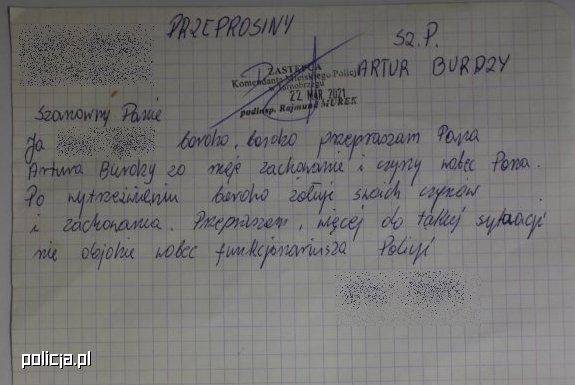 PRZEPROSINY
SZ. P.
ARTUR BURDZY
ZASTĘPCA
Komendanta Miejskiego Policji
w Tarnobrzegu
22. MAR. 2021
podinsp. Rajmund MUREK
Szanowny Panie
Ja bardzo, bardzo przepraszam Pana
Artura Burdzy za moje zachowanie i czyny wobec Pana.
Po wytrzeźwieniu bardzo żałuję swoich czynów
i zachowania. Przepraszam, więcej do takiej sytuacji
nie dojdzie wobec funkcjonariusza Policji
policja.pl